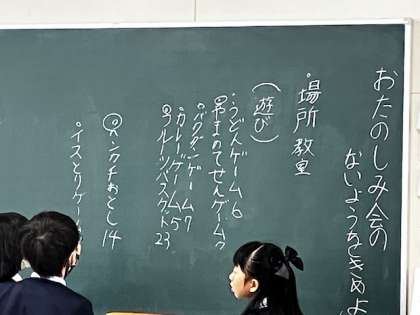 おたのしみ会の
ないようをきめよ
・場所 教室
(遊び)
・うどんゲーム6
・早まわてせんゲーム
・バクダンゲーム7
・カレーゲーム5
◎フルーツバスケット23
◎ハンカチおとし14
・イスとりゲー